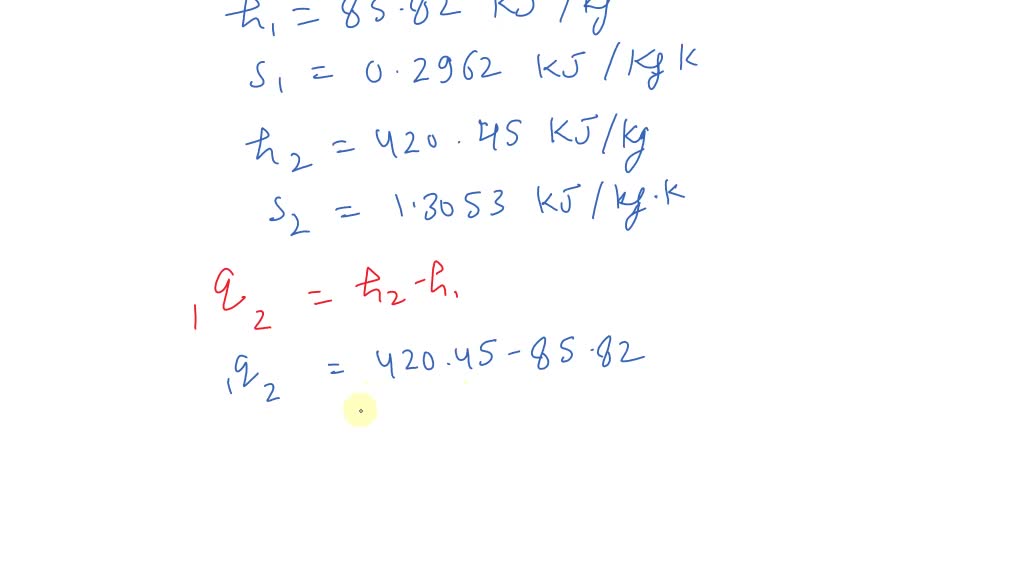 h₁ = 85.82 KJ/kg
s₁ = 0.2962 KJ/Kg K
h₂ = 420.45 KJ/kg
s₂ = 1.3053 KJ/kg.K
₁q₂ = h₂-h₁
₁q₂ = 420.45-85.82